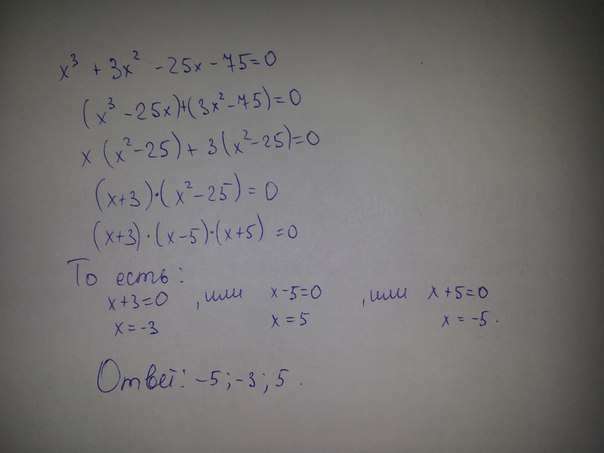 x³ + 3x² - 25x - 75 = 0
(x³ - 25x) + (3x² - 75) = 0
x (x² - 25) + 3(x² - 25) = 0
(x+3)·(x² - 25) = 0
(x+3)·(x-5)·(x+5) = 0
То есть:
x+3=0 , или x-5=0 , или x+5=0
x=-3 x=5 x=-5.
Ответ: -5; -3; 5.